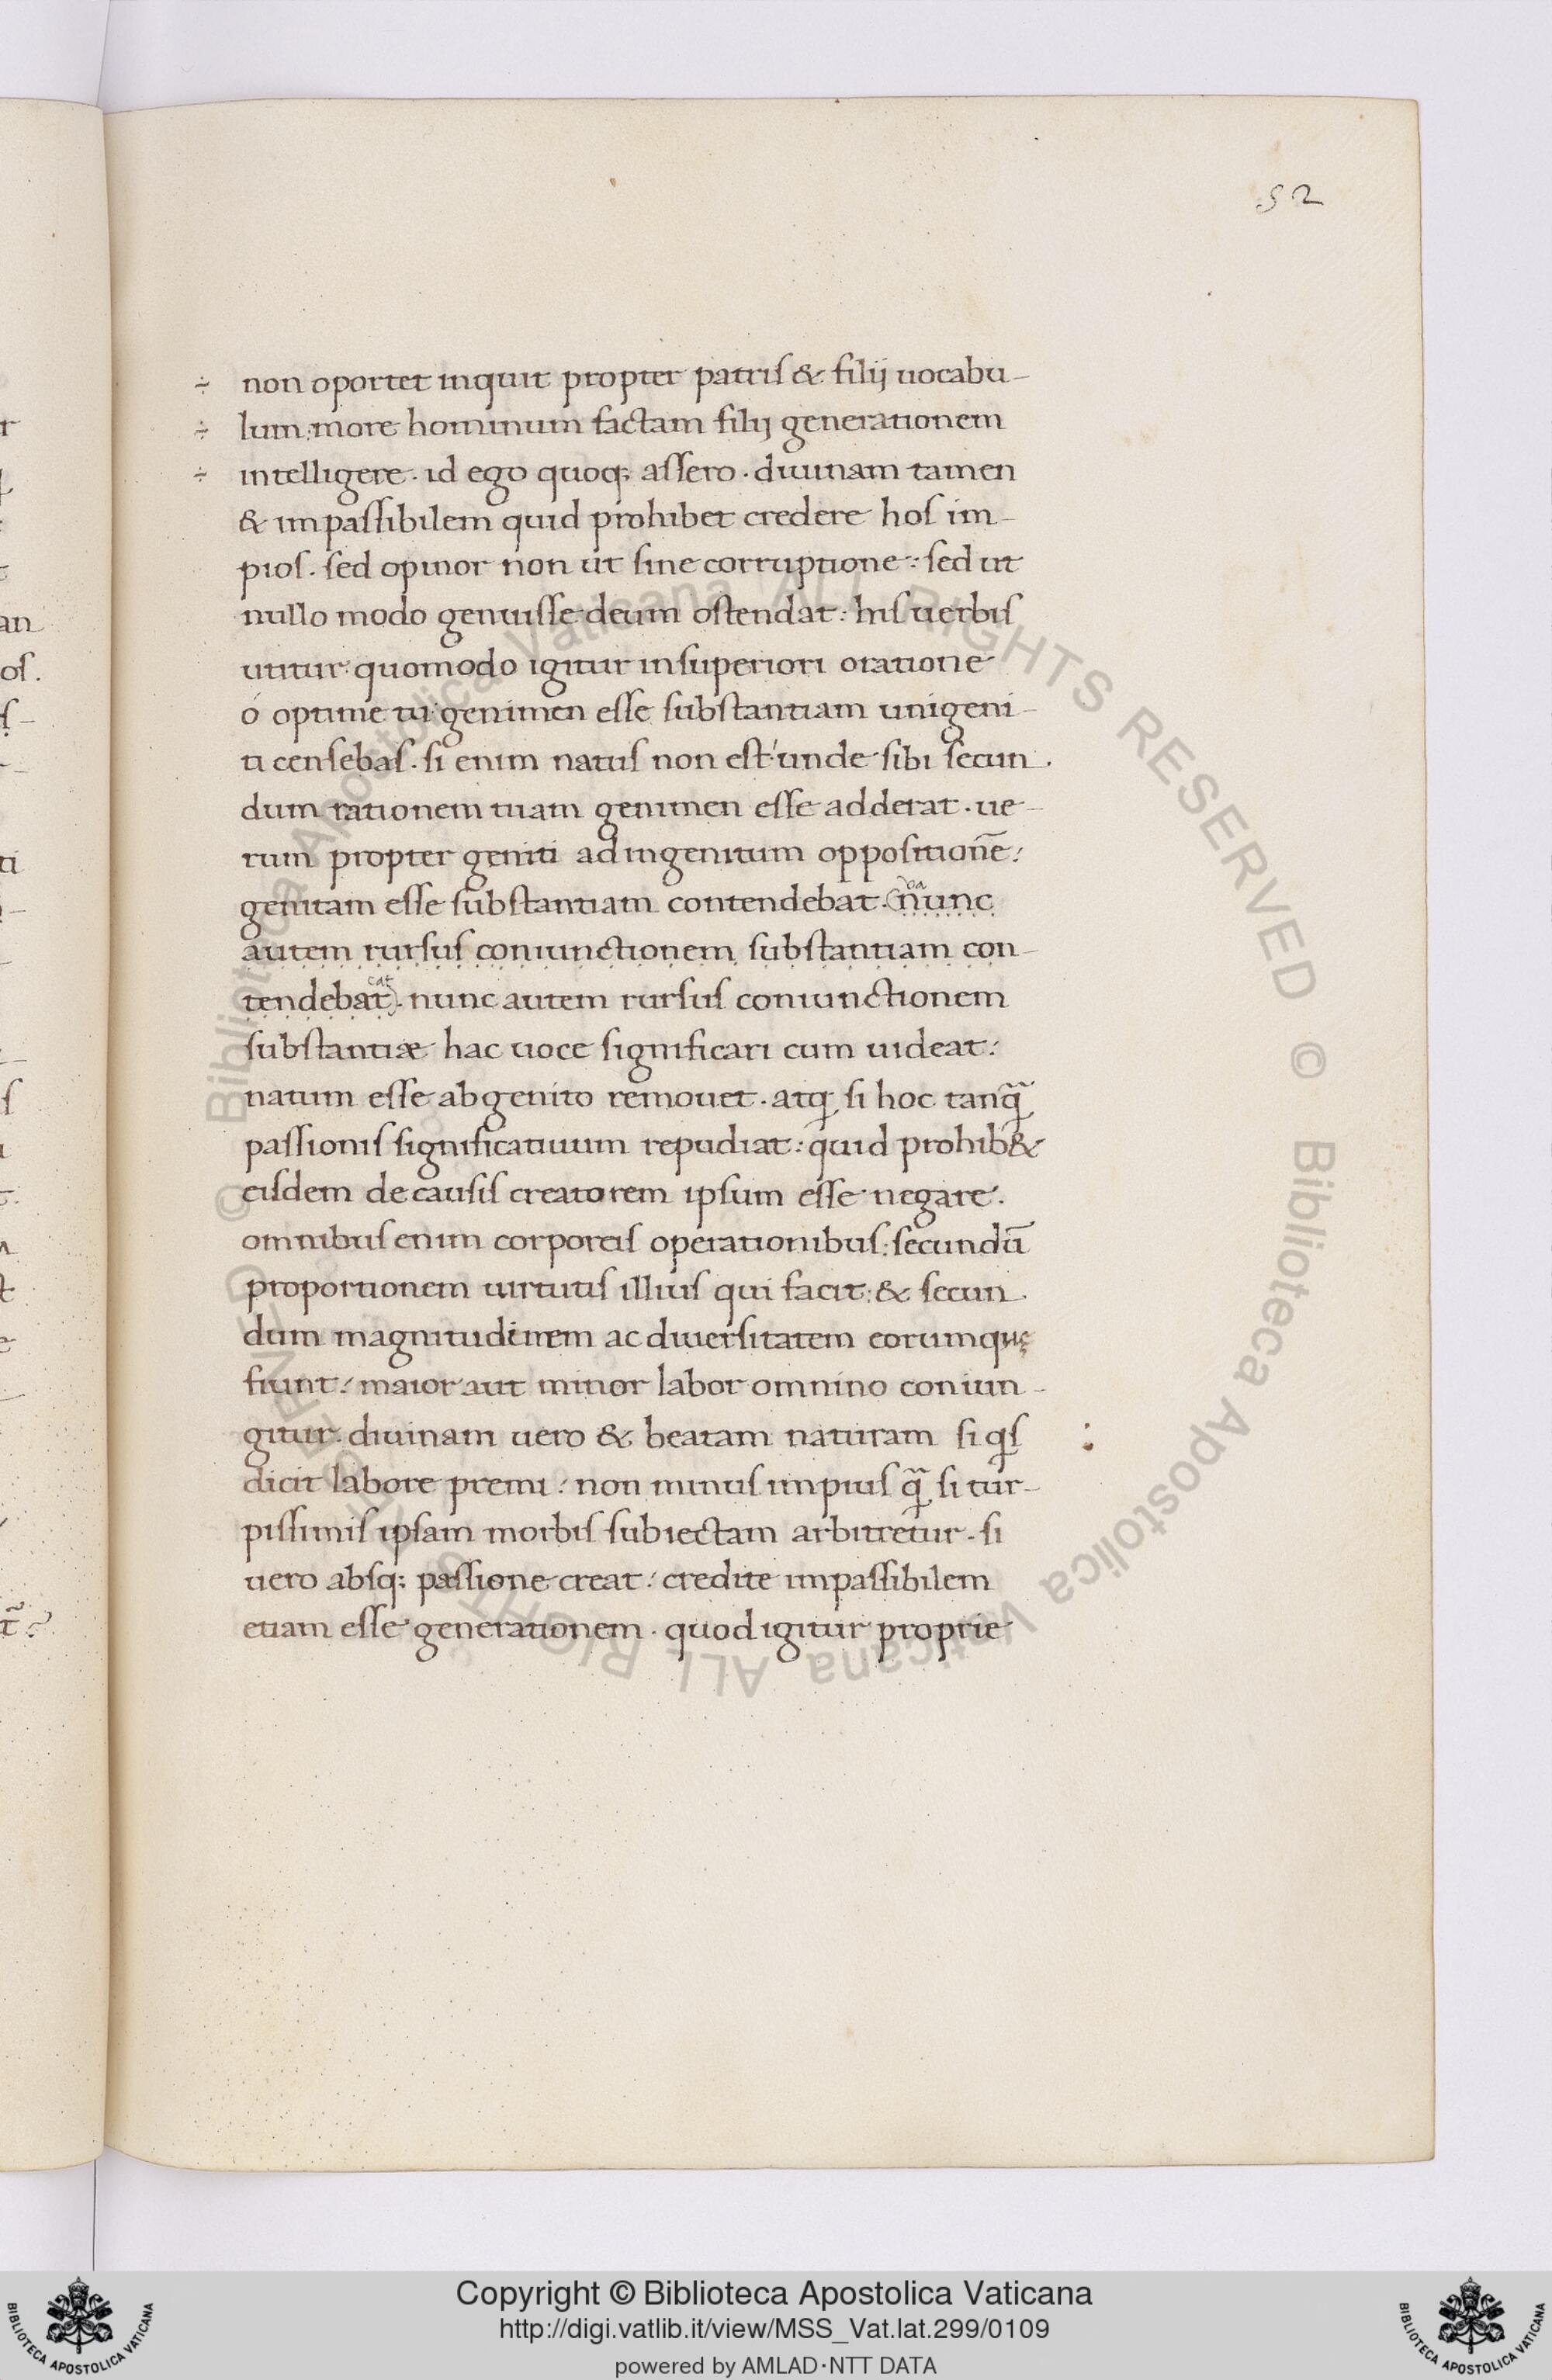 52
÷ non oportet inquit propter patriſ & filij uocabu-
÷ lum: more hominum factam filij generationem
÷ intelligere. id ego quoq; aſſero. diuinam tamen
& impaſſibilem quid prohibet credere hoſ im-
pioſ. ſed opinor non ut ſine corruptione: ſed ut
nullo modo genuiſſe deum oſtendat: hiſ uerbiſ
utitur. quomodo igitur inſuperiori oratione
ó optime tu genimen eſſe ſubſtantiam unigeni-
ti cenſebaſ. ſi enim natuſ non eſt: unde ſibi ſecun-
dum rationem tuam genimen eſſe adderat. ue-
rum propter geniti ad ingenitum oppoſitionē:
genitam eſſe ſubſtantiam contendebat. (nunc
autem rurſuſ coniunctionem ſubſtantiam con-
tendebat). nunc autem rurſuſ coniunctionem
ſubſtantiæ hac uoce ſignificari cum uideat:
natum eſſe ab genito remouet. atq; ſi hoc tanq̃
paſſioniſ ſignificatiuum repudiat: quid prohib&
eiſdem de cauſiſ creatorem ipſum eſſe negare.
omnibuſ enim corporeiſ operationibuſ: ſecundū
proportionem uirtutiſ illiuſ qui facit: & ſecun-
dum magnitudinem ac diuerſitatem eorumquę
fiunt: maior aut minor labor omnino coniun-
gitur. diuinam uero & beatam naturam ſi qſ
dicit labore premi: non minuſ impiuſ q̃ ſi tur-
piſſimiſ ipſam morbiſ ſubiectam arbitretur. ſi
uero abſq; paſſione creat: credite impaſſibilem
etiam eſſe generationem. quod igitur proprie
Copyright © Biblioteca Apostolica Vaticana
http://digi.vatlib.it/view/MSS_Vat.lat.299/0109
powered by AMLAD·NTT DATA